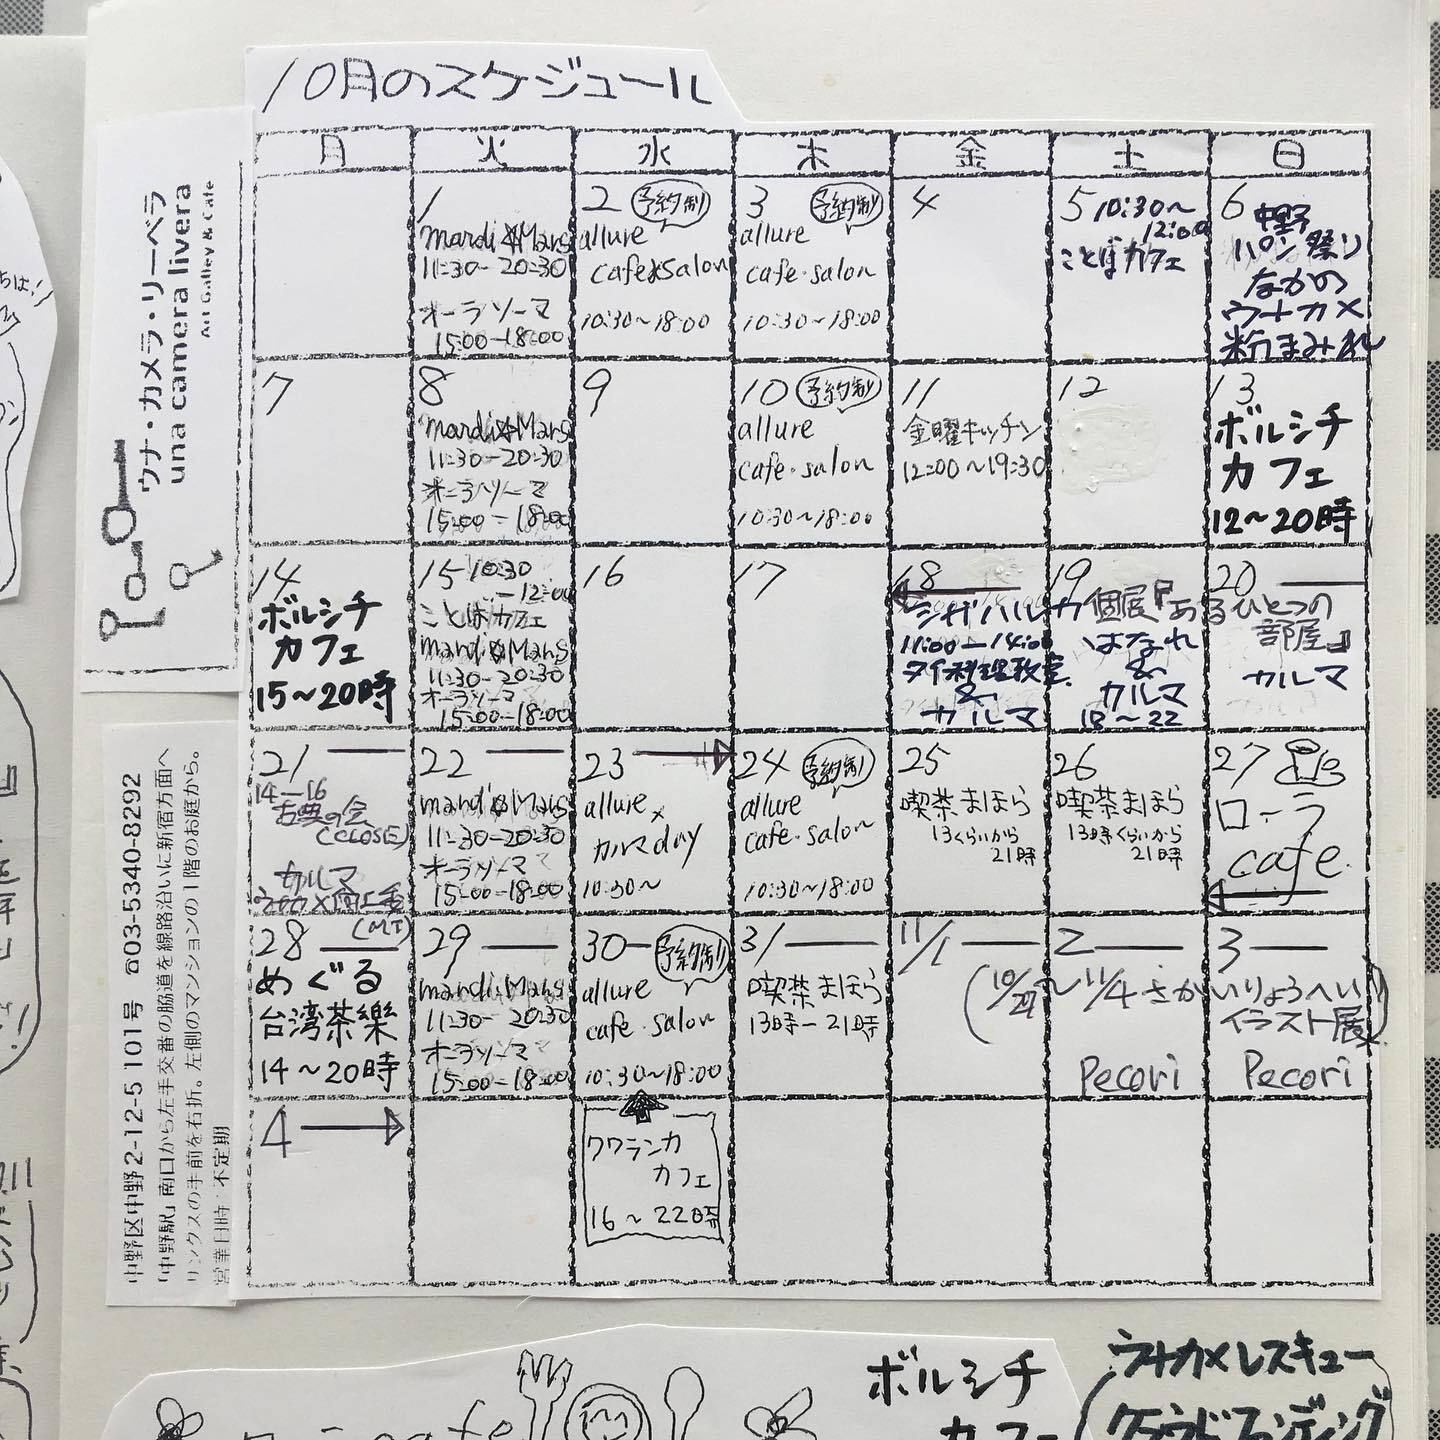 10月のスケジュール
月 火 水 木 金 土 日
1
mardi☆Mars
11:30-20:30
オーラソーマ
15:00-18:00
2 予約制
allure
cafe☆salon
10:30~18:00
3 予約制
allure
cafe・salon
10:30~18:00
4
5 10:30~
12:00
ことばカフェ
6 中野
パン祭り
なかの
ウナカメ
粉まみれ
7
8
mardi☆Mars
11:30-20:30
オーラソーマ
15:00-18:00
9
10 予約制
allure
cafe・salon
10:30~18:00
11
金曜キッチン
12:00~19:30
12
13
ボルシチ
カフェ
12~20時
14
ボルシチ
カフェ
15~20時
15 10:30
-12:00
ことばカフェ
mardi☆Mars
11:30-20:30
オーラソーマ
15:00-18:00
16
17
18 19 20
シガハルカ個展『あるひとつの
部屋』
11:00-14:00
タイ料理教室
&
カルマ
はなれ
&
カルマ
18~22
カルマ
21
14-16
古典の会
(CLOSE)
カルマ
22
mardi☆Mars
11:30-20:30
オーラソーマ
15:00-18:00
23
allure×
カルマday
10:30~
24 予約制
allure
cafe・salon
10:30~18:00
25
喫茶まほら
13くらいから
21時
26
喫茶まほら
13時くらいから
21時
27
ローラ
cafe.
28
めぐる
台湾茶樂
14~20時
29
mardi☆Mars
11:30-20:30
オーラソーマ
15:00-18:00
30 予約制
allure
cafe・salon
10:30~18:00
31
喫茶まほら
13時-21時
11/1 2 3
(10/27~11/4 さかいりょうへい
イラスト展)
Pecori
Pecori
4
クワランカ
カフェ
16~22時
ウナ・カメラ・リーベラ
una camera livera
Art Galley & Cafe
中野区中野2-12-5 101号 ☎03-5340-8292
「中野駅」南口から左手交番の脇道を線路沿いに新宿方面へ
リンクスの手前を右折。左側のマンションの1階のお庭から。
営業日時：不定期
ボルシチ
カフェ
ウナカメレスキュー
クラウドファンディング